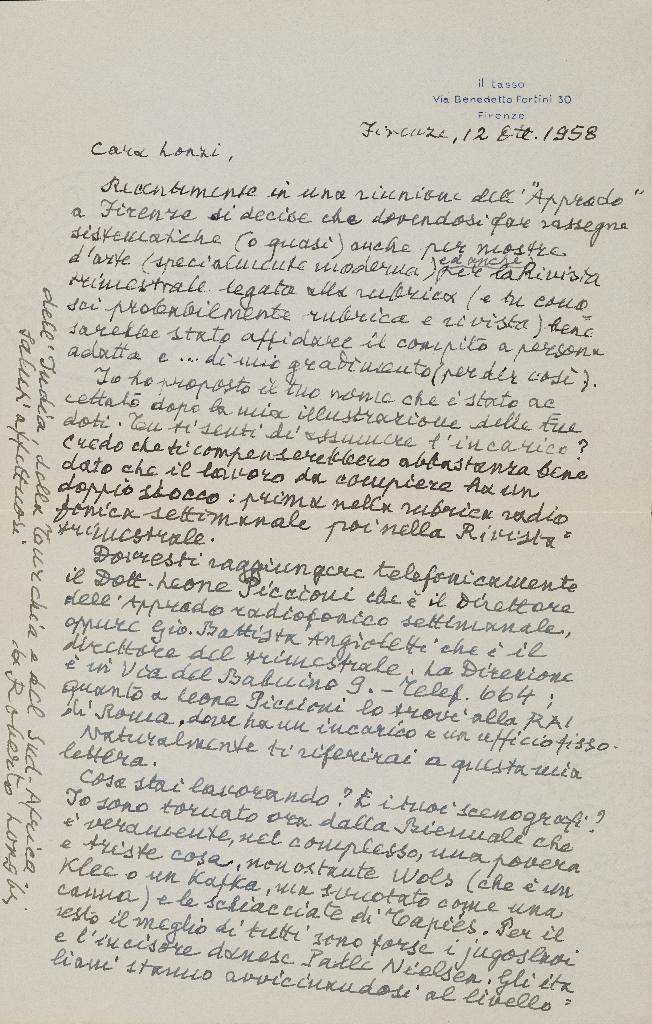 il tasso
Via Benedetto Fortini 30
Firenze
Firenze, 12 Ott. 1958
Cara Lonzi,
Recentemente in una riunione dell' "Approdo"
a Firenze si decise che dovendosi far rassegne
sistematiche (o quasi) anche per mostre
d'arte (specialmente moderna) ed anche per la Rivista
trimestrale legata alla rubrica (e tu cono
sci probabilmente rubrica e rivista) bene
sarebbe stato affidare il compito a persona
adatta e ... di mio gradimento (per dir così).
Io ho proposto il tuo nome che è stato ac
cettato dopo la mia illustrazione delle tue
doti. Tu ti senti di assumere l'incarico?
Credo che ti compenserebbero abbastanza bene
dato che il lavoro da compiere ha un
doppio sbocco: prima nella rubrica radio
fonica settimanale poi nella Rivista =
trimestrale.
Dovresti raggiungere telefonicamente
il Dott. Leone Piccioni che è il Direttore
dell'Approdo radiofonico settimanale,
oppure Gio. Battista Angioletti che è il
direttore del trimestrale. La Direzione
è in Via del Babuino 9. - Telef. 664;
quanto a Leone Piccioni lo trovi alla RAI
di Roma, dove ha un incarico e un ufficio fisso.
Naturalmente ti riferirai a questa mia
lettera.
Cosa stai lavorando? E i tuoi scenografi?
Io sono tornato ora dalla Biennale che
è veramente, nel complesso, una povera
e triste cosa, nonostante Wols (che è un
Klee o un Kafka, ma svuotato come una
canna) e le schiacciate di Tapiés. Per il
resto il meglio di tutti sono forse i jugoslavi
e l'incisore danese Palle Nielsen. Gli ita
liani stanno avvicinandosi al livello =
dell'India, della Turchia e del Sud-Africa.
Saluti affettuosi
da Roberto Longhi